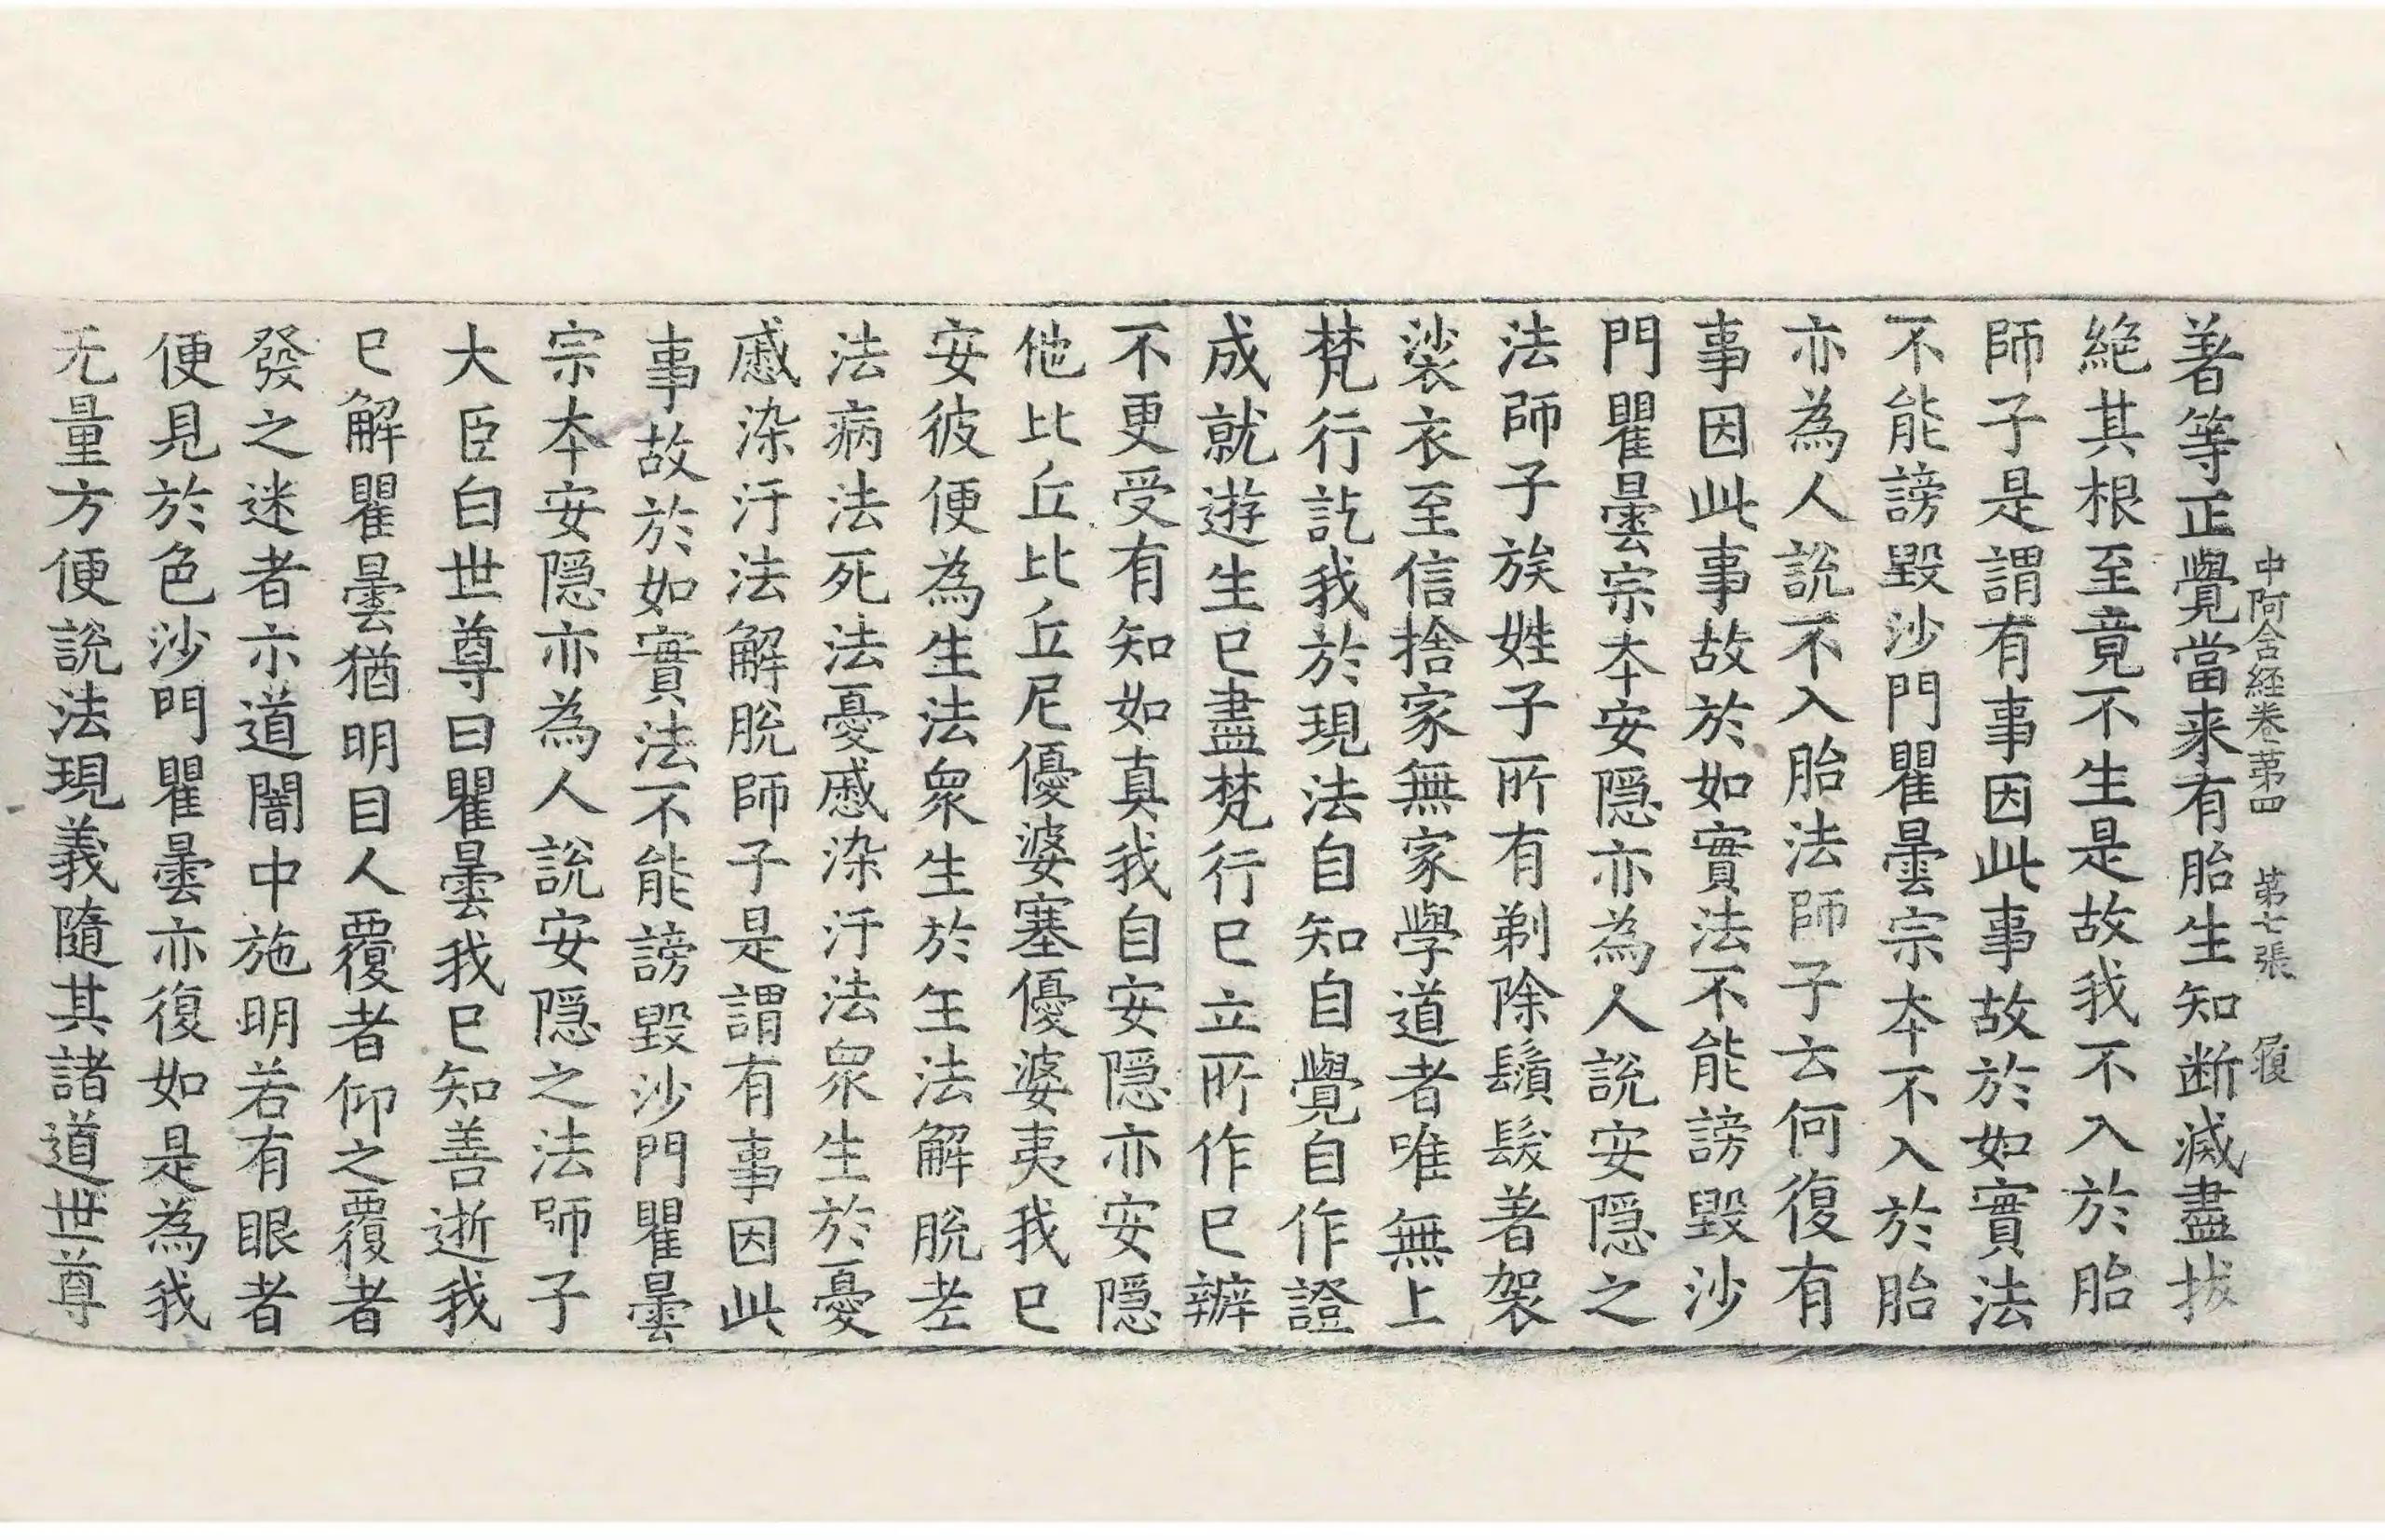 中阿含経卷苐四 苐七張 履
著等正覺當来有胎生知断滅盡拔
絶其根至竟不生是故我不入於胎
師子是謂有事因此事故於如實法
不能謗毀沙門瞿曇宗夲不入於胎
亦為人說不入胎法師子云何復有
事因此事故於如實法不能謗毀沙
門瞿曇宗夲安隠亦為人說安隠之
法師子族姓子所有剃除鬚髮著袈
裟衣至信捨家無家學道者唯無上
梵行訖我於現法自知自覺自作證
成就遊生已盡梵行已立所作已辦
不更受有知如真我自安隠亦安隠
他比丘比丘尼優婆塞優婆夷我已
安彼便為生法衆生於生法解脫老
法病法死法憂慼染汙法衆生於憂
慼染汙法解脫師子是謂有事因此
事故於如實法不能謗毀沙門瞿曇
宗夲安隠亦為人說安隠之法師子
大臣白世尊曰瞿曇我已知善逝我
已解瞿曇猶明目人覆者仰之覆者
發之迷者示道闇中施明若有眼者
便見於色沙門瞿曇亦復如是為我
无量方便說法現義隨其諸道世尊